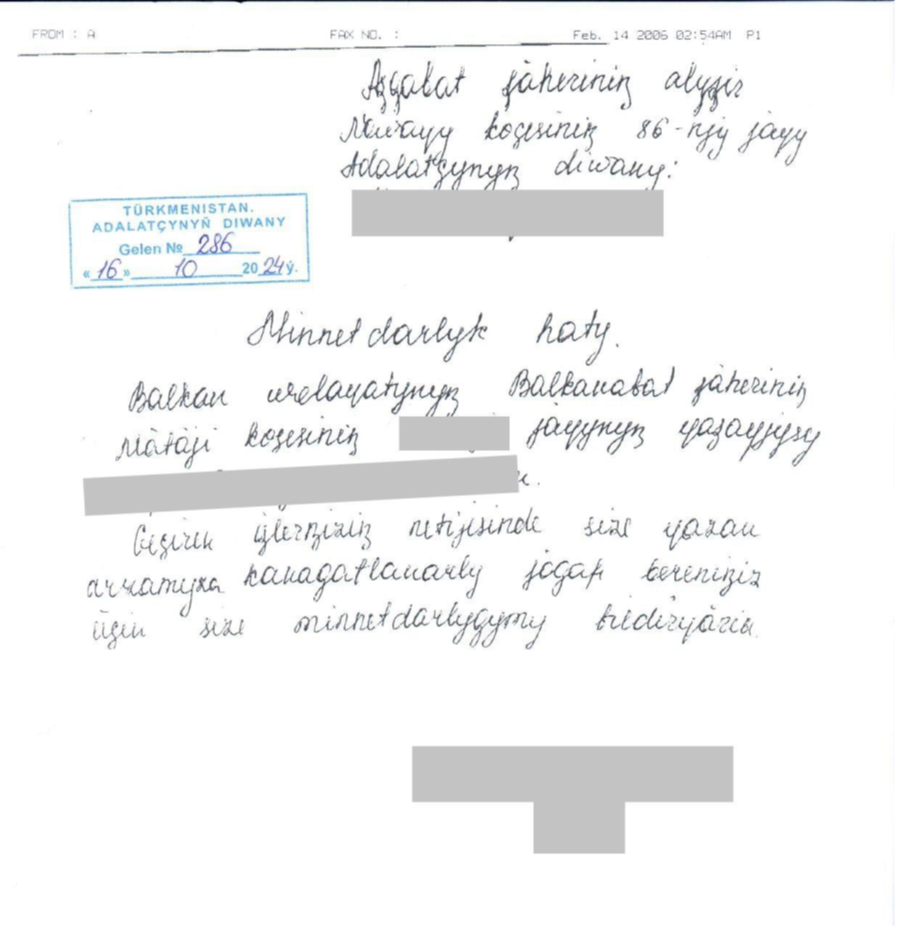 FROM : A FAX NO. : Feb. 14 2006 02:54AM P1
Aşgabat şäheriniň alyşir
Nawayy köçesiniň 86-njy jaýy
Adalatçynyň diwany:
TÜRKMENISTAN.
ADALATÇYNYŇ DIWANY
Gelen № 286
« 16 » 10 2024 ý.
Minnetdarlyk haty.
Balkan welaýatynyň Balkanabat şäheriniň
Mätäji köçesiniň jaýynyň ýaşaýjysy
Geçiren işleriziň netijisinde size ýazan
arzamyza kanagatlanarly jogap bereniňiz
üçin size minnetdarlygymy bildirýärin.